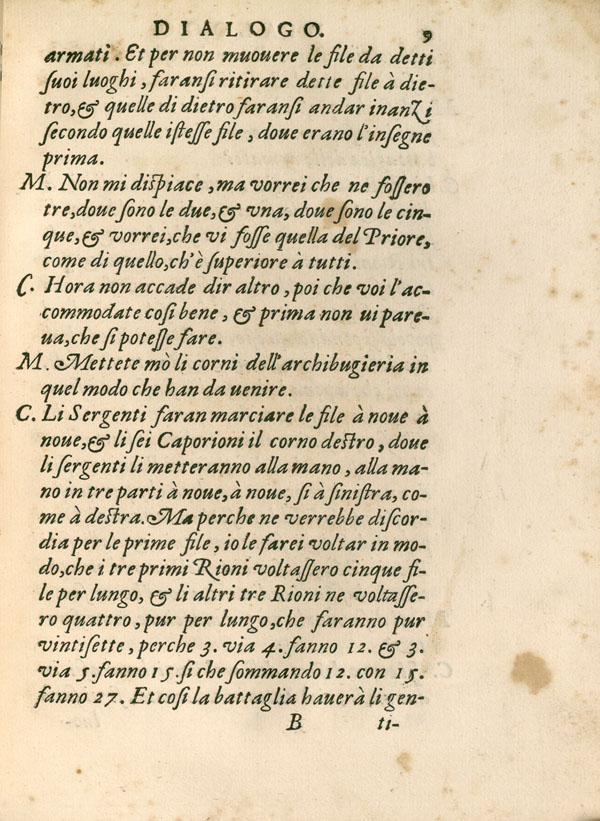 DIALOGO. 9
armati. Et per non muouere le file da detti
suoi luoghi, faransi ritirare dette file à die-
tro, & quelle di dietro faransi andar inanZi
secondo quelle istesse file, doue erano l'insegne
prima.
M. Non mi dispiace, ma vorrei che ne fossero
tre, doue sono le due, & vna, doue sono le cin-
que, & vorrei, che vi fosse quella del Priore,
come di quello, ch'è superiore à tutti.
C. Hora non accade dir altro, poi che voi l'ac-
commodate cosi bene, & prima non ui pare-
ua, che si potesse fare.
M. Mettete mò li corni dell'archibugieria in
quel modo che han da uenire.
C. Li Sergenti faran marciare le file à noue à
noue, & li sei Caporioni il corno destro, doue
li sergenti li metteranno alla mano, alla ma-
no in tre parti à noue, à noue, si à sinistra, co-
me à destra. Ma perche ne verrebbe discor-
dia per le prime file, io le farei voltar in mo-
do, che i tre primi Rioni voltassero cinque fi-
le per lungo, & li altri tre Rioni ne voltasse-
ro quattro, pur per lungo, che faranno pur
vintisette, perche 3. via 4. fanno 12. & 3.
via 5. fanno 15. si che sommando 12. con 15.
fanno 27. Et cosi la battaglia hauerà li gen-
B ti-